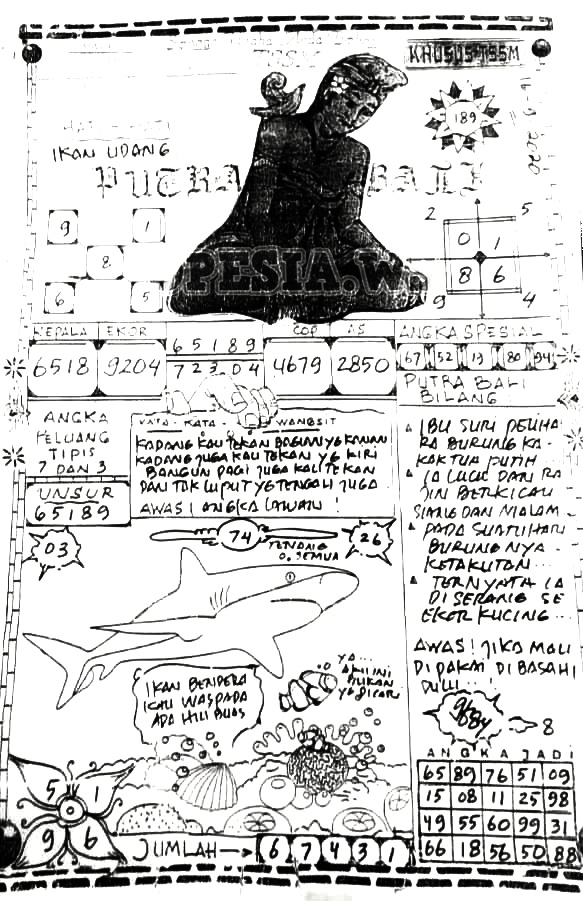 KHUSUS TSSM
189
IKAN UDANG
PUTRA BALI
PESIA.W.
9 1
8
6 5
2 5
0 1
8 6
9 4
KEPALA EKOR
6518 9204
6 5 1 8 9
7 2 3 0 4
COP AS
4679 2850
ANGKA SPESIAL
67 52 19 80 94
PUTRA BALI
BILANG :
ANGKA
PELUANG
TIPIS
7 DAN 3
UNSUR
65189
KATA - KATA WANGSIT
KADANG KAU TEKAN BAGIAN YG KANAN
KADANG JUGA KAU TEKAN YG KIRI
BANGUN PAGI JUGA KAU TEKAN
DAN TAK LUPUT YG TENGAH JUGA
AWAS! ANGKA LAWAN!
IBU SURI PELIHA
RA BURUNG KA-
KAKTUA PUTIH
IA LUCU DAN RA
JIN BERKICAU
SIANG DAN MALAM
PADA SUATU HARI
BURUNG NYA
KETAKUTAN...
TERNYATA IA
DI SERANG SE
EKOR KUCING...
AWAS! JIKA MAU
DI PAKAI DI BASAHI
DULU...!
03
74
26
TENANG
SEMUA
IKAN BENDERA
KAU WASPADA
ADA HIU BUAS
YA...
AKU INI
BUKAN
YG DICARI
8
ANGKA JADI
65 89 76 51 09
15 08 11 25 98
49 55 60 99 31
66 18 56 50 88
5 1
9 6
JUMLAH → 6 7 4 3 1